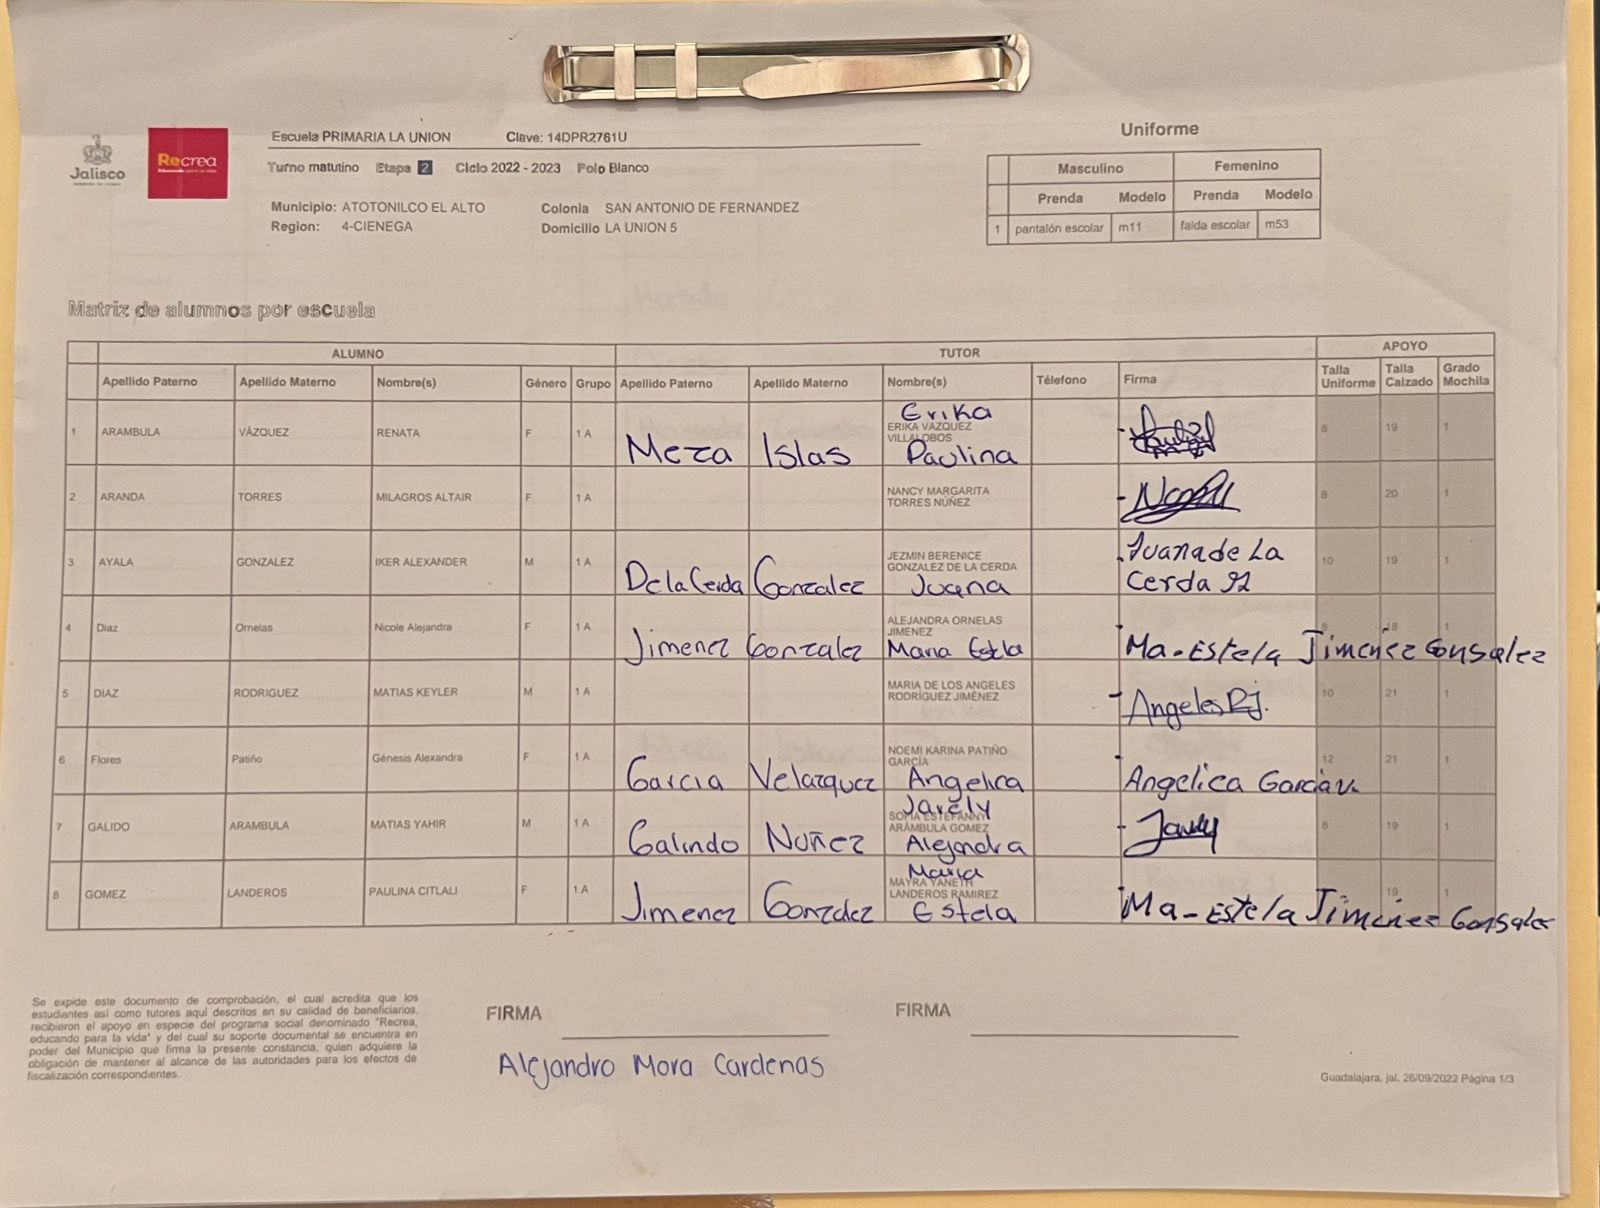 Jalisco
Recrea
Escuela PRIMARIA LA UNION Clave: 14DPR2761U
Turno matutino Etapa 2 Ciclo 2022 - 2023 Polo Blanco
Municipio: ATOTONILCO EL ALTO Colonia SAN ANTONIO DE FERNANDEZ
Region: 4-CIENEGA Domicilio LA UNION 5
Uniforme
Masculino Femenino
Prenda Modelo Prenda Modelo
1 pantalón escolar m11 falda escolar m53
Matriz de alumnos por escuela
ALUMNO TUTOR APOYO
Apellido Paterno Apellido Materno Nombre(s) Género Grupo Apellido Paterno Apellido Materno Nombre(s) Télefono Firma Talla Uniforme Talla Calzado Grado Mochila
Erika
1 ARAMBULA VÁZQUEZ RENATA F 1 A ERIKA VÁZQUEZ VILLALOBOS 8 19 1
Meza Islas Paulina
2 ARANDA TORRES MILAGROS ALTAIR F 1 A NANCY MARGARITA TORRES NÚÑEZ 8 20 1
3 AYALA GONZALEZ IKER ALEXANDER M 1 A JEZMIN BERENICE GONZALEZ DE LA CERDA Juana de La 10 19 1
De la Cerda Gonzalez Juana Cerda
4 Diaz Ornelas Nicole Alejandra F 1 A ALEJANDRA ORNELAS JIMENEZ 1
Jimenez Gonzalez Maria Estela Ma-Estela Jimenez Gonsalez
5 DIAZ RODRIGUEZ MATIAS KEYLER M 1 A MARIA DE LOS ANGELES RODRÍGUEZ JIMÉNEZ Angeles RJ. 10 21 1
6 Flores Patiño Génesis Alexandra F 1 A NOEMI KARINA PATIÑO GARCÍA 12 21 1
Garcia Velazquez Angelica Angelica Garcia V.
Jarely
7 GALIDO ARAMBULA MATIAS YAHIR M 1 A SOFIA ESTEFANNY ARÁMBULA GOMEZ Jarely 8 19 1
Galindo Nuñez Alejandra
Maria
8 GOMEZ LANDEROS PAULINA CITLALI F 1 A MAYRA YANETH LANDEROS RAMIREZ 19 1
Jimenez Gonzalez Estela Ma-Estela Jimenez Gonsalez
Se expide este documento de comprobación, el cual acredita que los
estudiantes así como tutores aquí descritos en su calidad de beneficiarios,
recibieron el apoyo en especie del programa social denominado "Recrea,
educando para la vida" y del cual su soporte documental se encuentra en
poder del Municipio que firma la presente constancia, quien adquiere la
obligación de mantener al alcance de las autoridades para los efectos de
fiscalización correspondientes.
FIRMA FIRMA
Alejandro Mora Cardenas
Guadalajara, jal. 26/09/2022 Página 1/3